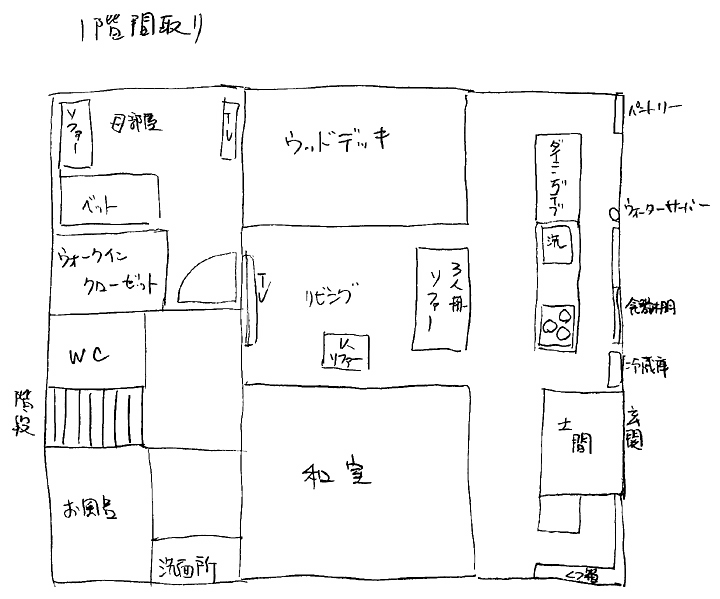 1階間取り
ソファー
母部屋
TV
ウッドデッキ
ダイニングテーブル
パントリー
ベット
ウォーターサーバー
洗
ウォークイン
クローゼット
TV
リビング
3人掛
ソファー
食器棚
1人
ソファー
WC
冷蔵庫
階段
土間
玄関
和室
お風呂
洗面所
くつ箱